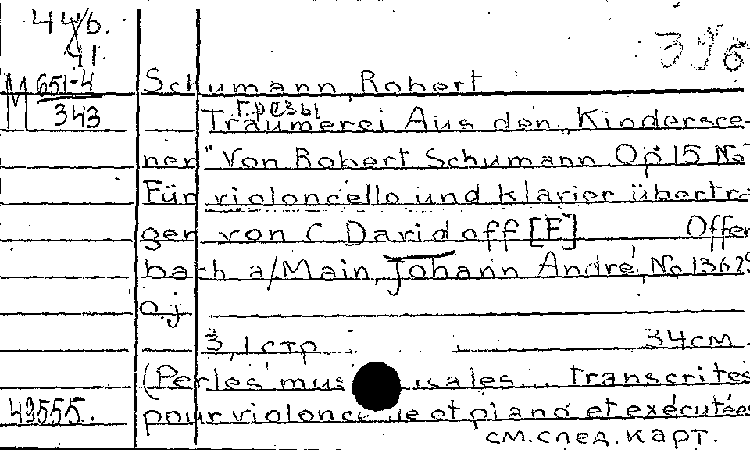 44/6.
41
396
M 651-4
343
Schumann, Robert
Грезы
Träumerei Aus den „Kindersce-
nen" Von Robert Schumann Op 15 No
Für violoncello und klavier übertra
gen von C Davidoff [F] Offen
bach a/Main, Johann André, No 1362
o.j
3, 1 стр 34см
(Perles musicales ... transcrites
49555. pour violoncelle et piano et exécutées
см.след.карт.